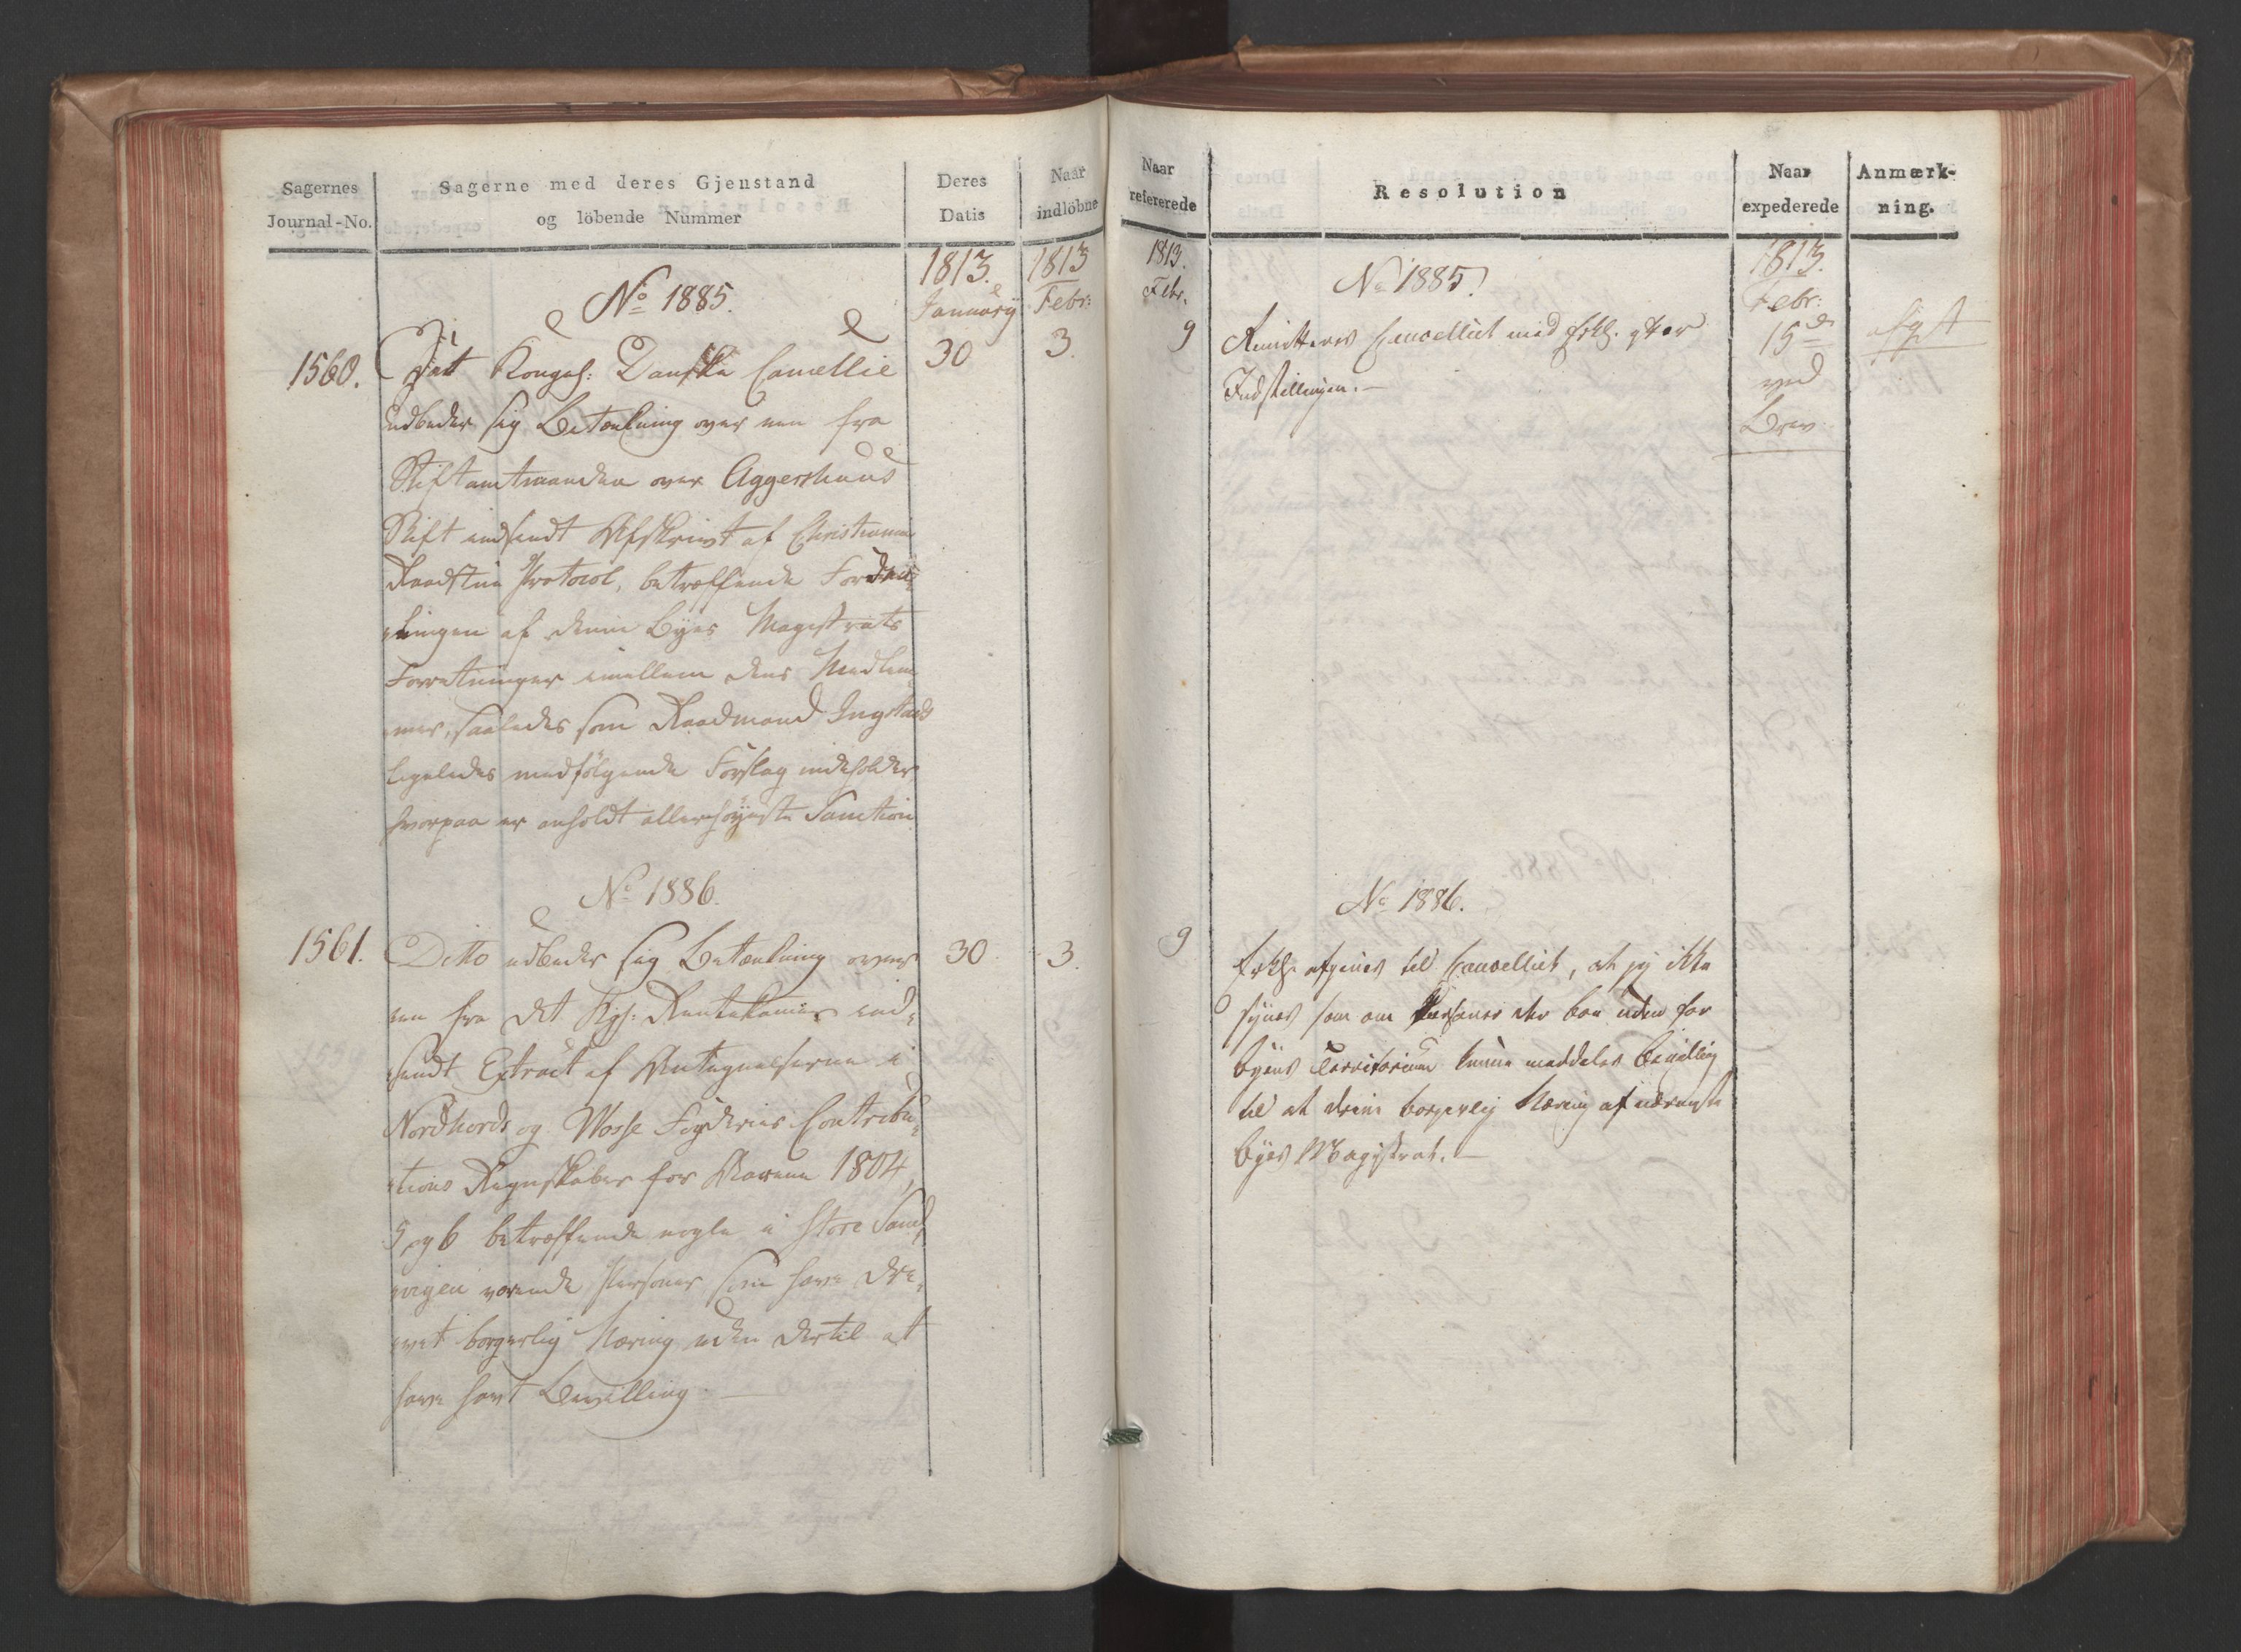 Sagernes
Journal-No.
Sagerne med deres Gjenstand
og löbende Nummer
Deres
Datis
Naar
indlöbne
1813.
Januarÿ
1813
Febr:
No 1885.
1560.
Det Kongel: Danske Cancellie
30
3.
udbeder sig Betænkning over een fra
Stiftamtmanden over Aggershuus
Stift indsendt Afskrivt af Christiania
Raadstue Protocol, betræffende Fordee-
lingen af denne Byes Magistrats
Forretninger imellem dens Medlem-
mer, saaledes som Raadmand Ingstads
ligeledes medfölgende Forslag indeholder
hvorpaa er anholdt allerhöyeste Sanction
No 1886.
1561.
Ditto udbeder sig Betænkning over
30
3.
een fra det Kgl: Rentekammer ind-
sendt Extract af Antegnelserne i
Nordhords og Wosse Fogderies Contribu-
tions Regnskaber for Aarene 1804,
5 og 6 betræffende nogle i store Sand-
vigen værende Personer som have dre-
vet borgerlig Næring uden dertil at
have havt Bevilling. —
Naar
refererede
Resolution
Naar
expederede
Anmærk-
ning.
1813.
Febr.
1813.
Febr:
No 1885.
9
Remitteres Cancelliet med Erkl. efter
15de
afgt
Indstillingen. —
ved
Brev
No 1886.
9
Erkl. afgives til Cancelliet, at jeg ikke
synes som om Personer der boe uden for
byens Territorium kunne meddeles Bevilling
til at drive borgerlig Næring af nærmeste
byes Magistrat. —